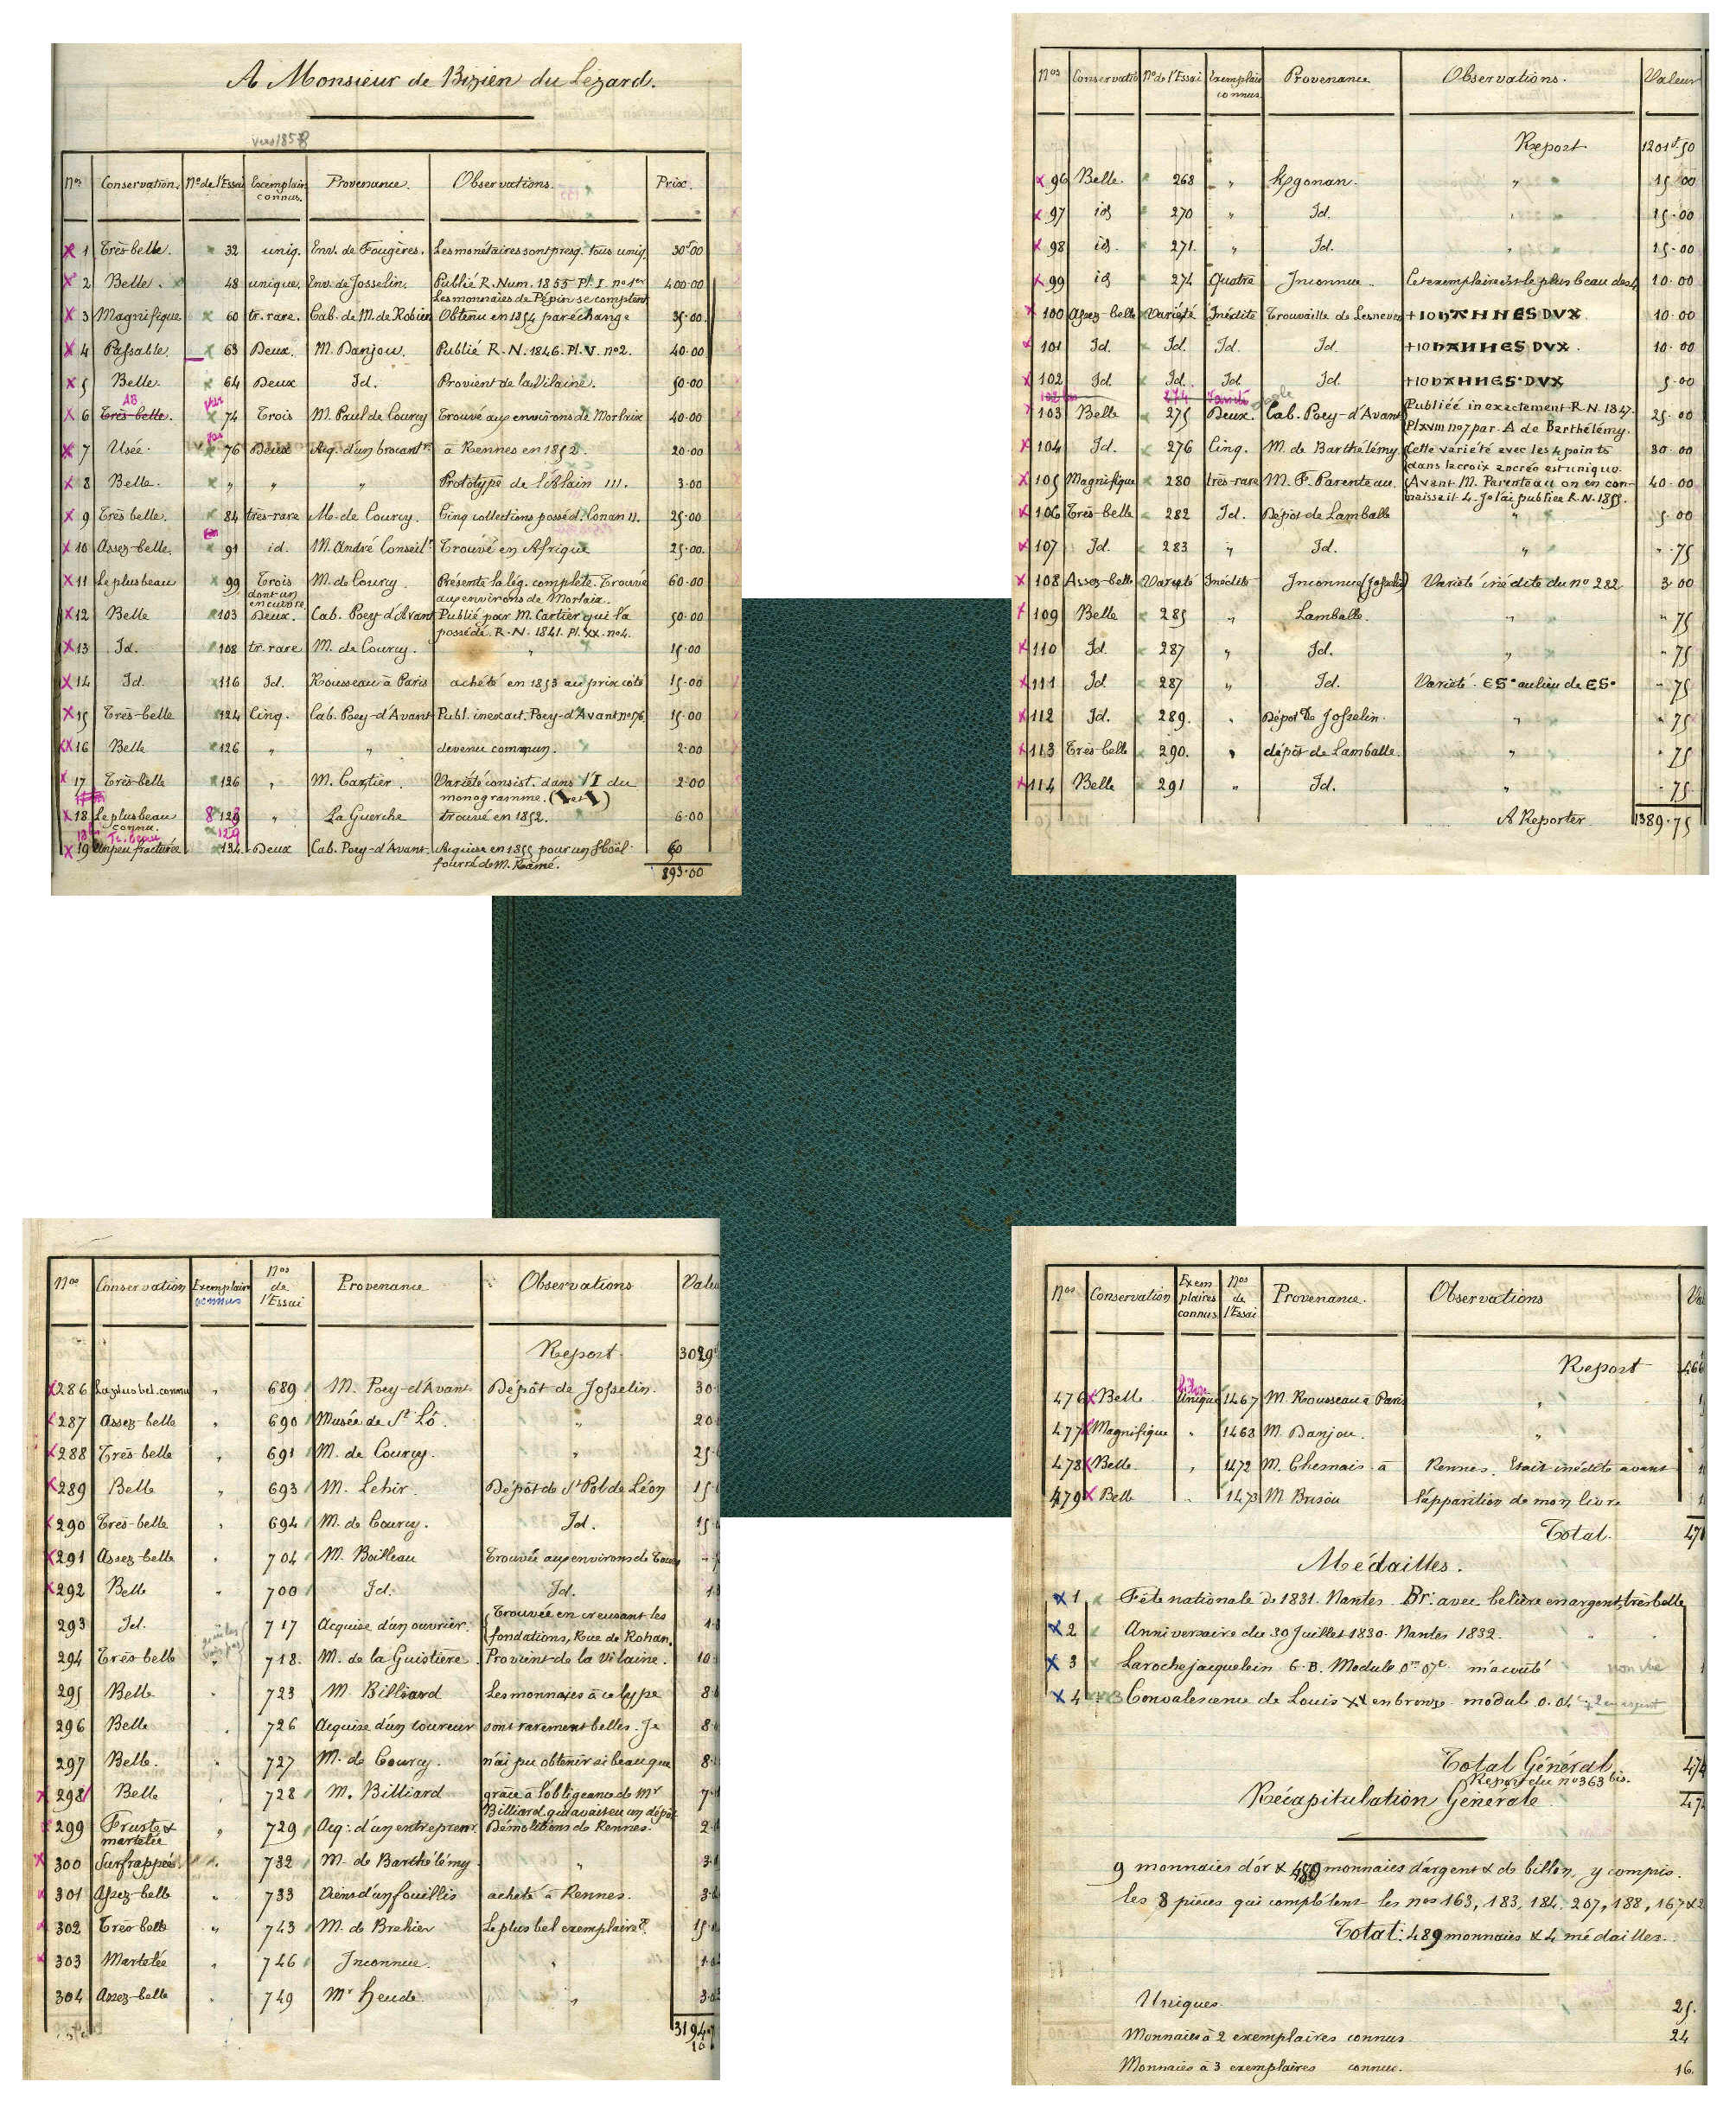 A Monsieur de Bizien du Lézard.
vers 185
Nos Conservation. No de l'Essai Exemplair connus. Provenance. Observations. Prix.
1 Très-belle. 32 uniq. Env. de Fougères. Les monétaires sont presq. tous uniq. 30f00
2 Belle. 48 unique. Env. de Josselin. Publié R. Num. 1855 Pl. I no 1er 400.00
Les monnaies de Pépin se comptent
3 Magnifique 60 tr. rare. Cab. de M. de Robien Obtenu en 1854 par échange 35.00
4 Passable. 63 Deux. M. Danjou. Publié R.N. 1846. Pl. V. no2. 40.00
5 Belle. 64 Deux Id. Provient de la Vilaine. 50.00
AB
6 Très-belle. 74 Trois M. Paul de Courcy Trouvé aux environs de Morlaix 40.00
7 Usée. 76 Deux Acq. d'un brocantr. à Rennes en 1852. 20.00
8 Belle. " " " Prototype de l'Alain III. 3.00
9 Très belle. 84 très-rare M. de Courcy. Cinq collections posséd. Conan II. 25.00
10 Assez-belle. 91 id. M. André Conseilr Trouvé en Afrique 25.00.
11 Le plus beau 99 Trois M. de Courcy. Présente la lég. complète. Trouvé 60.00
dont un en cuivre aux environs de Morlaix.
12 Belle 103 Deux. Cab. Poey d'Avant Publié par M. Cartier qui l'a 50.00
possédé. R.N. 1841. Pl. XX. no4.
13 Id. 108 tr. rare M. de Courcy. " 15.00
14 Id. 116 Id. Rousseau à Paris acheté en 1853 au prix coté 15.00
15 Très-belle 124 Cinq. Cab. Poey-d'Avant Publ. inexact. Poey-d'Avant no 76. 15.00
16 Belle 126 " " devenu commun. 2.00
17 Très-belle 126 " M. Cartier. Variété consist. dans l'I du 2.00
monogramme. (I et I)
18 Le plus beau connu. 129 " La Guerche trouvé en 1852. 6.00
18 bis Tr. beau 129
19 Un peu fracturée 134 Deux Cab. Poey-d'Avant Acquise en 1855 pour un Hoël 60
fourré de M. Ramé.
893.00
Nos Conservatio No de l'Essai Exemplair connus Provenance Observations. Valeur
Report 1201f.50
96 Belle. 268 " Kgonan. " 15.00
97 id 270 " Id. " 15.00
98 id. 271. " Id. " 15.00
99 id 274 Quatre Inconnue.. Cet exemplaire est le plus beau des 4 10.00
100 Assez-belle Variété Inédite Trouvaille de Lesneven +IOhANNES DVX 10.00
101 Id. Id. Id. Id. +IOhANNES DVX. 10.00
102 Id Id. Id Id. +IOhANNES·DVX 5.00
102 bis 274 Variété
103 Belle 275 Deux. Cab. Poey-d'Avant Publiéé inexactement R.N. 1847. 25.00
Pl XVIII no 7 par. A de Barthélémy.
104 Id. 276 Cinq. M. de Barthélémy Cette variété avec les 4 points 30.00
dans la croix ancrée est unique.
105 Magnifique 280 très-rare M. F. Parenteau. Avant M. Parenteau on en con- 40.00
naissait 4. Je l'ai publiée R.N. 1855.
106 Très-belle 282 Id. Dépôt de Lamballe " 5.00
107 Id. 283 " Id. " ".75
108 Assez-belle Variété Inédite Inconnue (Josselin) Variété inédite du no 282 3.00
109 Belle 285 " Lamballe. " ".75
110 Id. 287 " Id. " ".75
111 Id 287 " Id. Variété. ES° au lieu de ES° ".75
112 Id. 289. " Dépôt de Josselin. " ".75
113 Très-belle 290. " dépôt de Lamballe. " ".75
114 Belle 291 " Id. " ".75
A Reporter 1389.75
Nos Conservation Exemplaire connus Nos de l'Essai Provenance Observations Valeu
Report. 3029
286 La plus bel. connu " 689 M. Poey-d'Avant Dépôt de Josselin. 30
287 Assez-belle " 690 Musée de St Lô. " 20
288 Très belle " 691 M. de Courcy. " 25
289 Belle " 693 M. Lehir. Dépôt de St Pol de Léon 15
290 Très-belle " 694 M. de Courcy. Id. 15
291 Assez-belle " 704 M. Boilleau Trouvée aux environs de Tours
292 Belle " 700 Id. Id. 1
293 Id. 717 Acquise d'un ouvrier. Trouvée en creusant les
fondations, Rue de Rohan.
294 Très-belle " 718. M. de la Guistière. Provient de la Vilaine. 10
295 Belle " 723 M. Billiard Les monnaies à ce type 8
296 Belle " 726 Acquise d'un couvreur sont rarement belles. Je 8
297 Belle. " 727 M. de Courcy. n'ai pu obtenir si beau que 8
298 Belle " 728 M. Billiard grâce à l'obligeance de Mr 7
Billiard qui avait eu un dépôt
299 Fruste & martelée " 729 Acq: d'un entreprenr. Démolitions de Rennes. 2
300 Surfrappée " 732 M. de Barthélémy. " 3
301 Assez-belle " 733 Viens d'un fouillis acheté à Rennes. 3
302 Très belle " 743 M. de Brehier Le plus bel exemplaire?. 15
303 Martelée " 746 Inconnue. " 1
304 Assez-belle " 749 Mr Heude. " 3
3194
Nos Conservation Exem plaires connus Nos de l'Essai Provenance. Observations Va
Report 466
476 Belle Unique 1467 M. Rousseau à Paris "
477 Magnifique " 1468 M. Danjou. "
478 Belle. " 1472 M. Chesnais à Rennes. Etait inédite avant
479 Belle " 1473 M Brisou l'apparition de mon livre
Total. 47
Médailles.
1 Fête nationale de 1831. Nantes. Br. avec belière en argent, très belle
2 Anniversaire du 30 Juillet 1830. Nantes 1832.
3 Larochejacquelein G.B. Module 0m 07c. m'a coûté non vue
4 Convalescence de Louis XV en bronze. modul. 0.04c. + 2 en argent
Total Général 474
Report du no 363 bis.
Récapitulation Générale 47
9 monnaies d'or & 480 monnaies d'argent & de billon, y compris.
les 8 pièces qui complètent les nos 163, 183, 184. 207, 188, 167 & 2
Total: 489 monnaies & 4 médailles.
Uniques. 25.
Monnaies à 2 exemplaires connus 24
Monnaies à 3 exemplaires connus. 16.